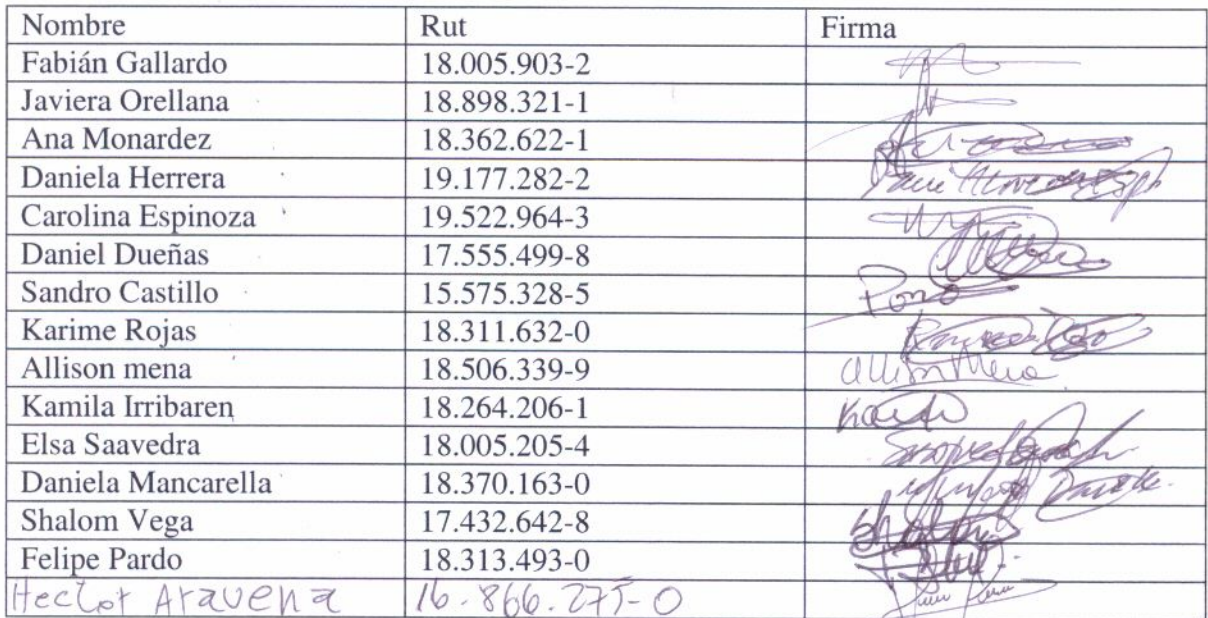 Nombre Rut Firma
Fabián Gallardo 18.005.903-2
Javiera Orellana 18.898.321-1
Ana Monardez 18.362.622-1
Daniela Herrera 19.177.282-2
Carolina Espinoza 19.522.964-3
Daniel Dueñas 17.555.499-8
Sandro Castillo 15.575.328-5
Karime Rojas 18.311.632-0
Allison mena 18.506.339-9 Allison Mena
Kamila Irribaren 18.264.206-1
Elsa Saavedra 18.005.205-4
Daniela Mancarella 18.370.163-0
Shalom Vega 17.432.642-8
Felipe Pardo 18.313.493-0
Hector Aravena 16.866.275-0